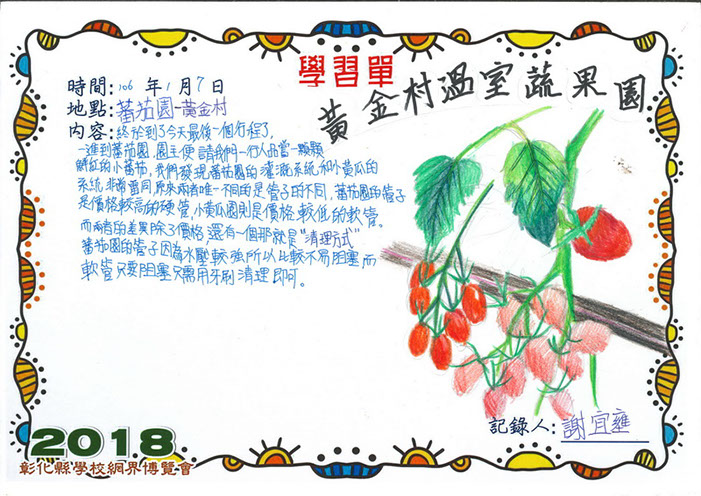 學習單
黃金村溫室蔬果園
時間:106 年 1 月 7 日
地點:蕃茄園-黃金村
內容:終於到了今天最後一個行程了,
一進到蕃茄園,園主便請我們一行人品嘗一顆顆
鮮紅的小蕃茄,我們發現蕃茄園的灌溉系統和小黃瓜的
系統非常雷同,原來兩者唯一不同的是管子的不同,蕃茄園的管子
是價格較高的硬管,小黃瓜園則是價格較低的軟管。
而兩者的差異除了價格,還有一個那就是"清理方式"
蕃茄園的管子因為水壓較強所以比較不易阻塞而
軟管只要阻塞只需用牙刷清理即可。
記錄人:謝宜雍
2018
彰化縣學校網界博覽會